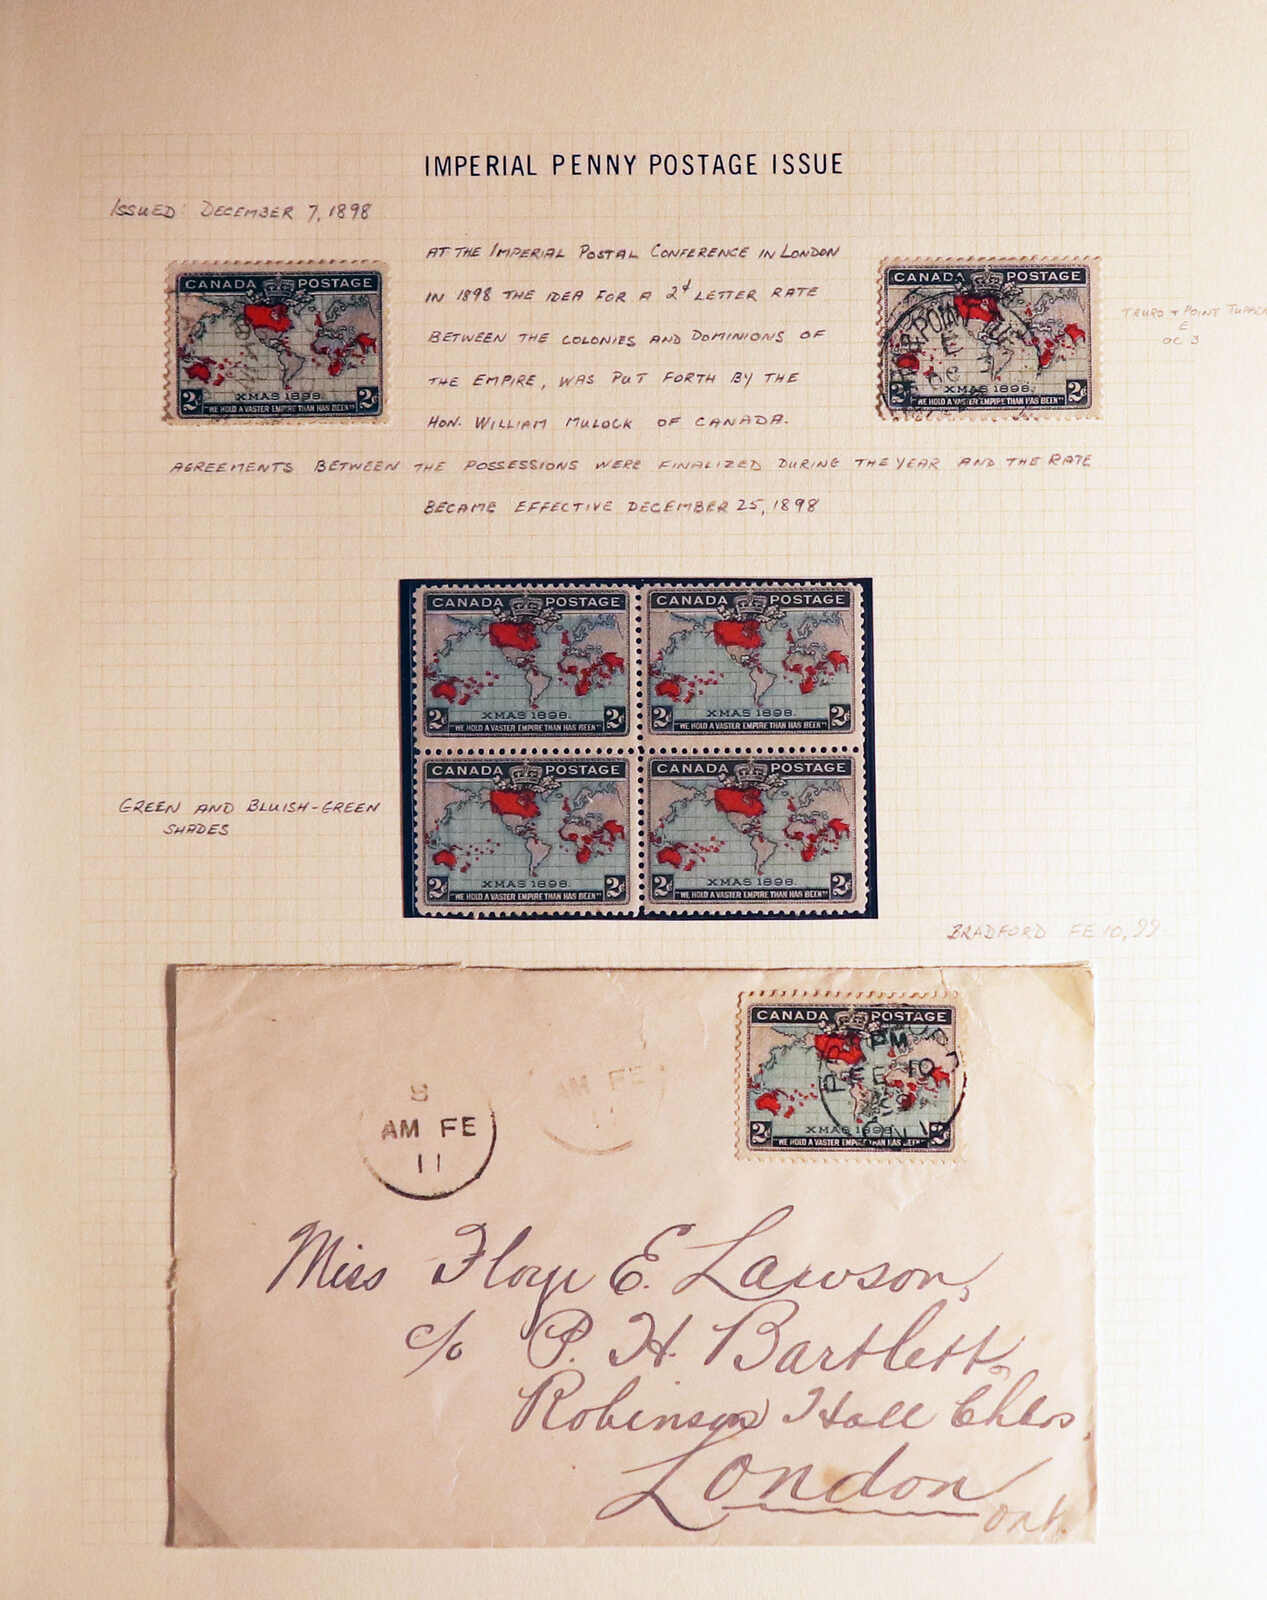 IMPERIAL PENNY POSTAGE ISSUE
ISSUED: DECEMBER 7, 1898
AT THE IMPERIAL POSTAL CONFERENCE IN LONDON
IN 1898 THE IDEA FOR A 2¢ LETTER RATE
BETWEEN THE COLONIES AND DOMINIONS OF
THE EMPIRE, WAS PUT FORTH BY THE
HON. WILLIAM MULOCK OF CANADA.
AGREEMENTS BETWEEN THE POSSESSIONS WERE FINALIZED DURING THE YEAR AND THE RATE
BECAME EFFECTIVE DECEMBER 25, 1898
CANADA POSTAGE
XMAS 1898.
2¢ 2¢
"WE HOLD A VASTER EMPIRE THAN HAS BEEN"
CANADA POSTAGE
XMAS 1898.
2¢ 2¢
"WE HOLD A VASTER EMPIRE THAN HAS BEEN"
POINT
E
OC
TRURO + POINT TUPPER
E
OC 3
CANADA POSTAGE
XMAS 1898.
2¢ 2¢
"WE HOLD A VASTER EMPIRE THAN HAS BEEN"
CANADA POSTAGE
XMAS 1898.
2¢ 2¢
"WE HOLD A VASTER EMPIRE THAN HAS BEEN"
CANADA POSTAGE
XMAS 1898.
2¢ 2¢
"WE HOLD A VASTER EMPIRE THAN HAS BEEN"
CANADA POSTAGE
XMAS 1898.
2¢ 2¢
"WE HOLD A VASTER EMPIRE THAN HAS BEEN"
GREEN AND BLUISH-GREEN
SHADES
BRADFORD FE 10, 99
CANADA POSTAGE
XMAS 1898.
2¢ 2¢
"WE HOLD A VASTER EMPIRE THAN HAS BEEN"
PM
FE 10
99
8
AM FE
11
AM FE
11
Miss Floye E. Lawson,
c/o P. H. Bartlett,
Robinson Hall Chbs
London
Ont.